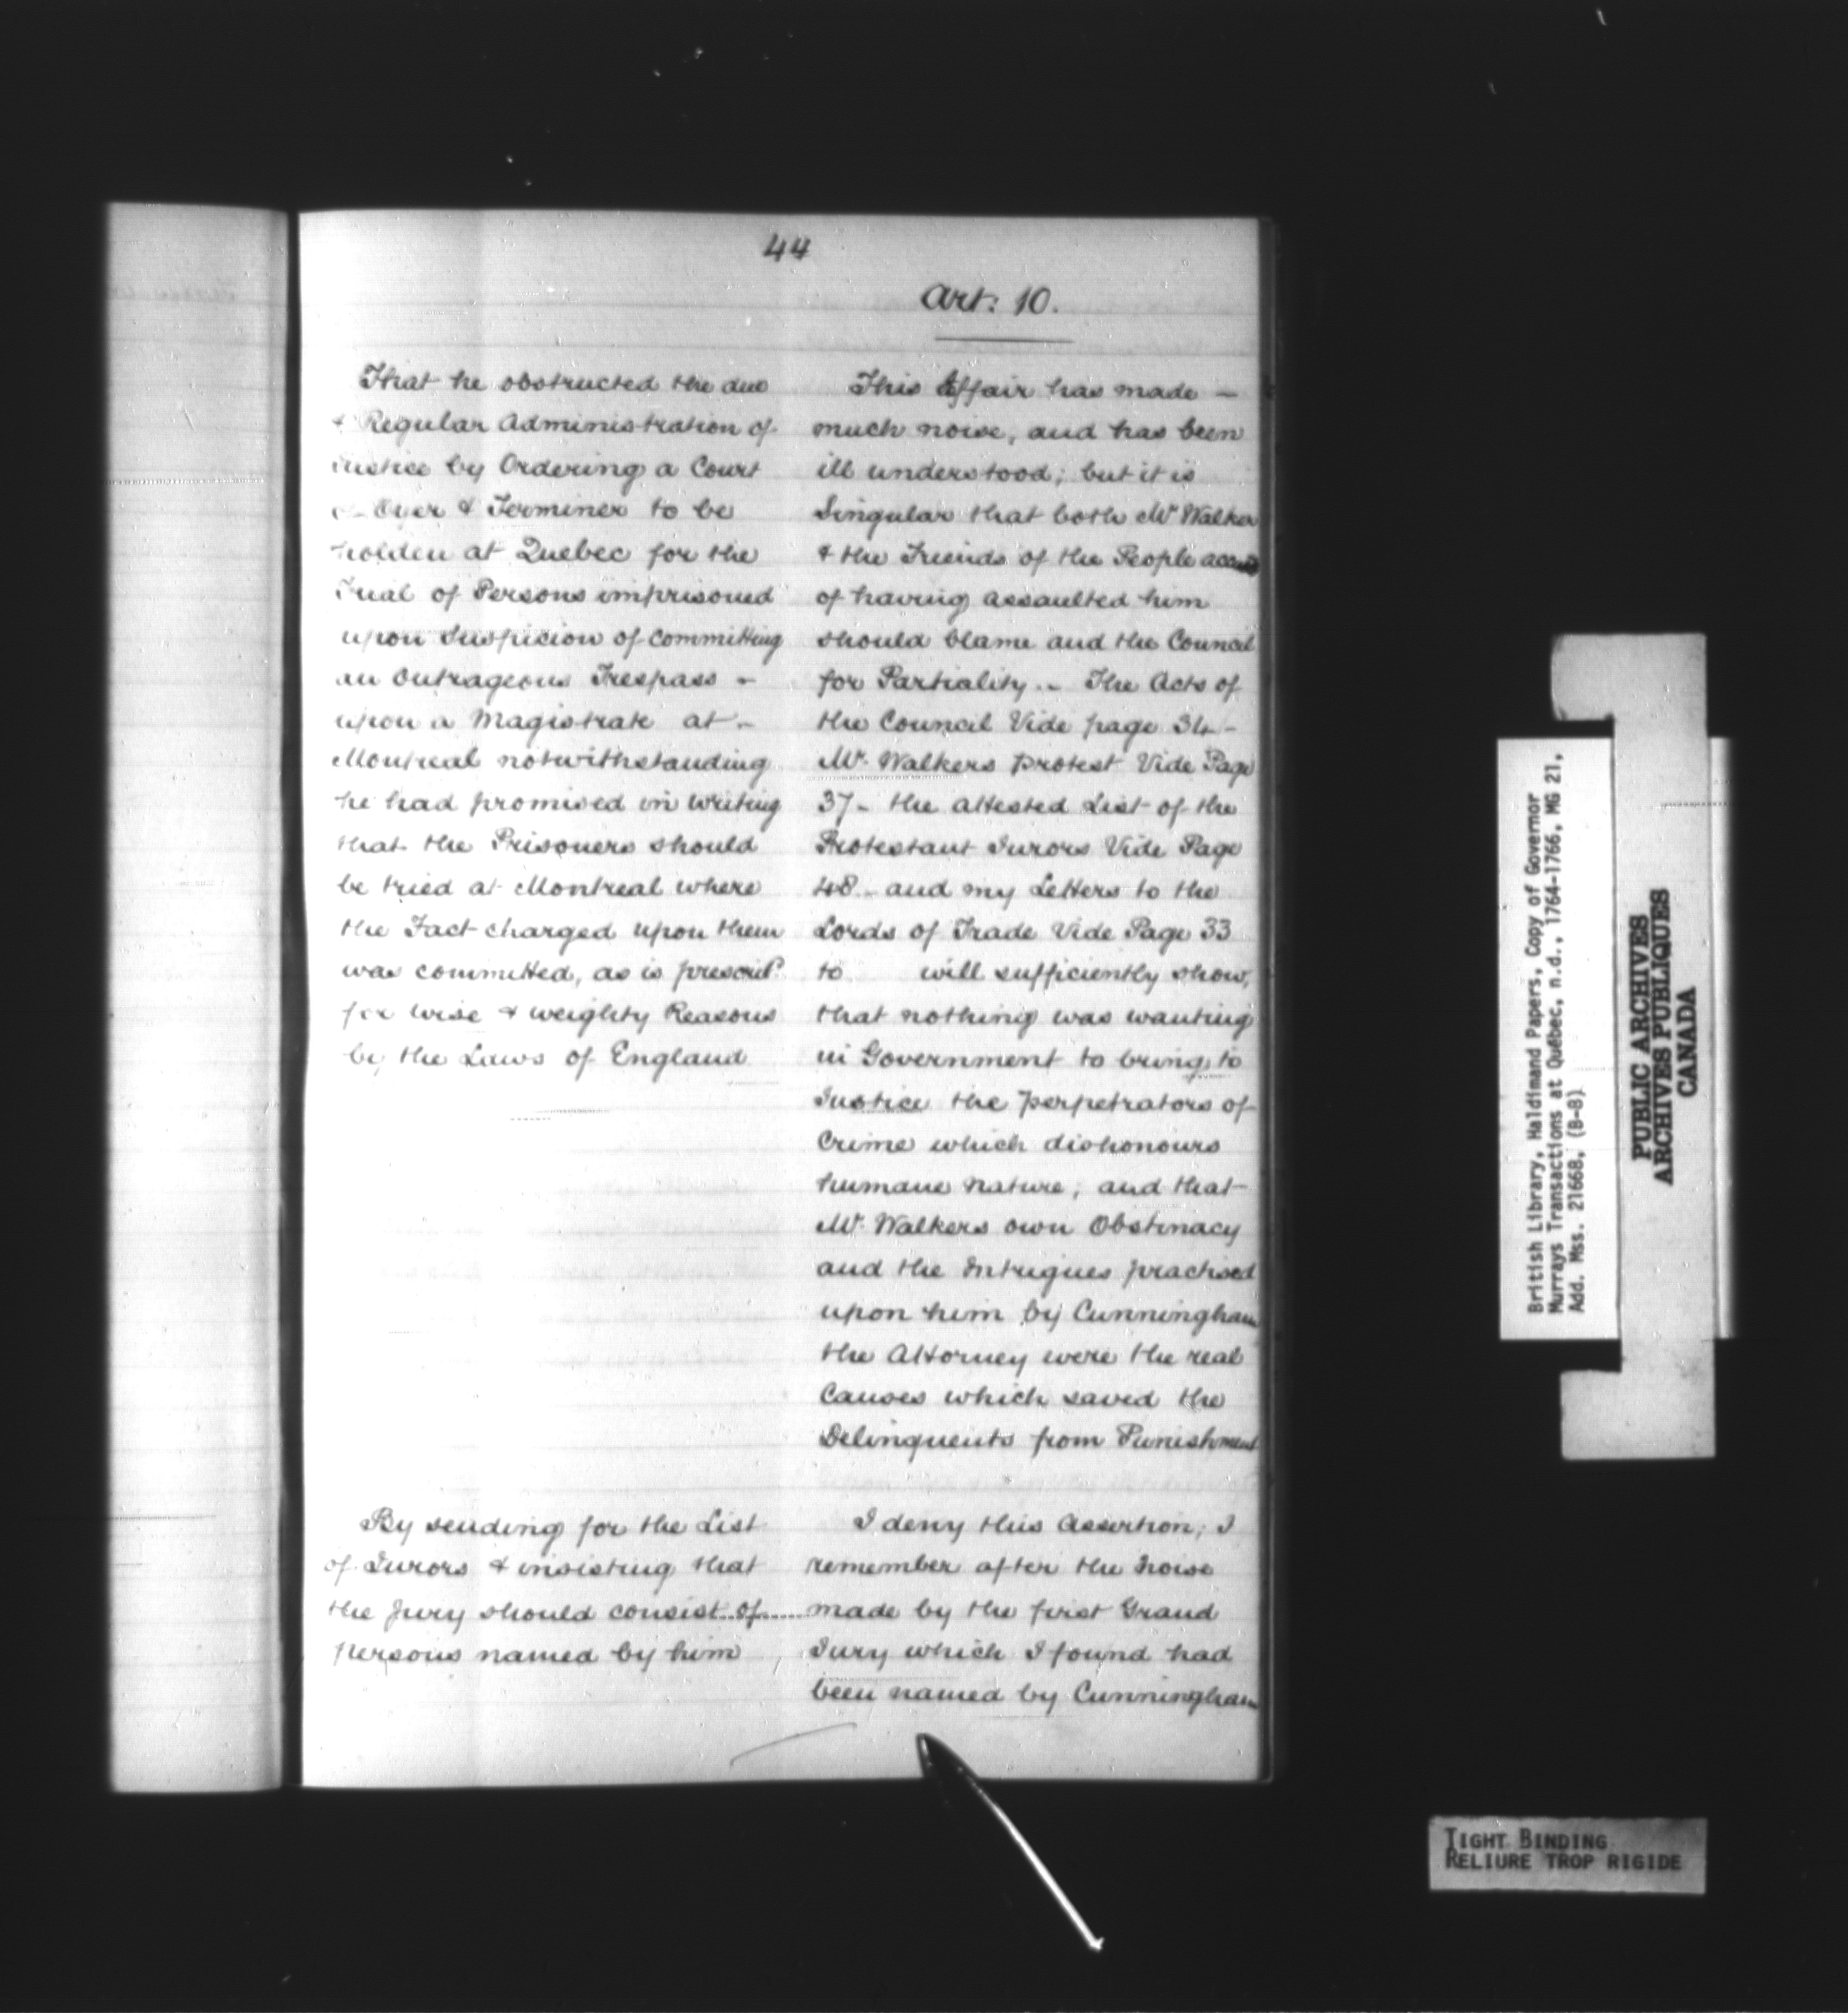 44
Art: 10.
That he obstructed the due
& Regular Administration of
Justice by Ordering a Court
of Oyer & Terminer to be
holden at Quebec for the
Trial of Persons imprisoned
upon Suspicion of Committing
an Outrageous Trespass -
upon a Magistrate at -
Montreal notwithstanding
he had promised in Writing
that the Prisoners should
be tried at Montreal where
the Fact charged upon them
was committed, as is
for wise & weighty Reasons
by the Laws of England
This Affair has made -
much noise, and has been
ill understood; but it is
Singular that both Mr Walker
& the Friends of the People
of having assaulted him
should blame and the Council
for Partiality. - The Acts of
the Council Vide page 34 -
Mr Walkers Protest Vide Page
37 - the attested List of the
Protestant Jurors Vide Page
48 - and my Letters to the
Lords of Trade Vide Page 33
to will sufficiently show,
that nothing was wanting
in Government to bring to
Justice the perpetrators of
Crime which dishonours
humane nature; and that
Mr Walkers own Obstinacy
and the Intrigues practised
upon him by Cunningham
the Attorney were the real
Causes which saved the
Delinquents from Punishment
By sending for the List
of Jurors & insisting that
the Jury should consist of
persons named by him
I deny this Assertion; I
remember after the Noise
made by the first Grand
Jury which I found had
been named by Cunningham
British Library, Haldimand Papers, Copy of Governor
Murrays Transactions at Québec, n.d., 1764-1766, MG 21,
Add. Mss. 21668, (B-8)
PUBLIC ARCHIVES
ARCHIVES PUBLIQUES
CANADA
TIGHT BINDING
RELIURE TROP RIGIDE